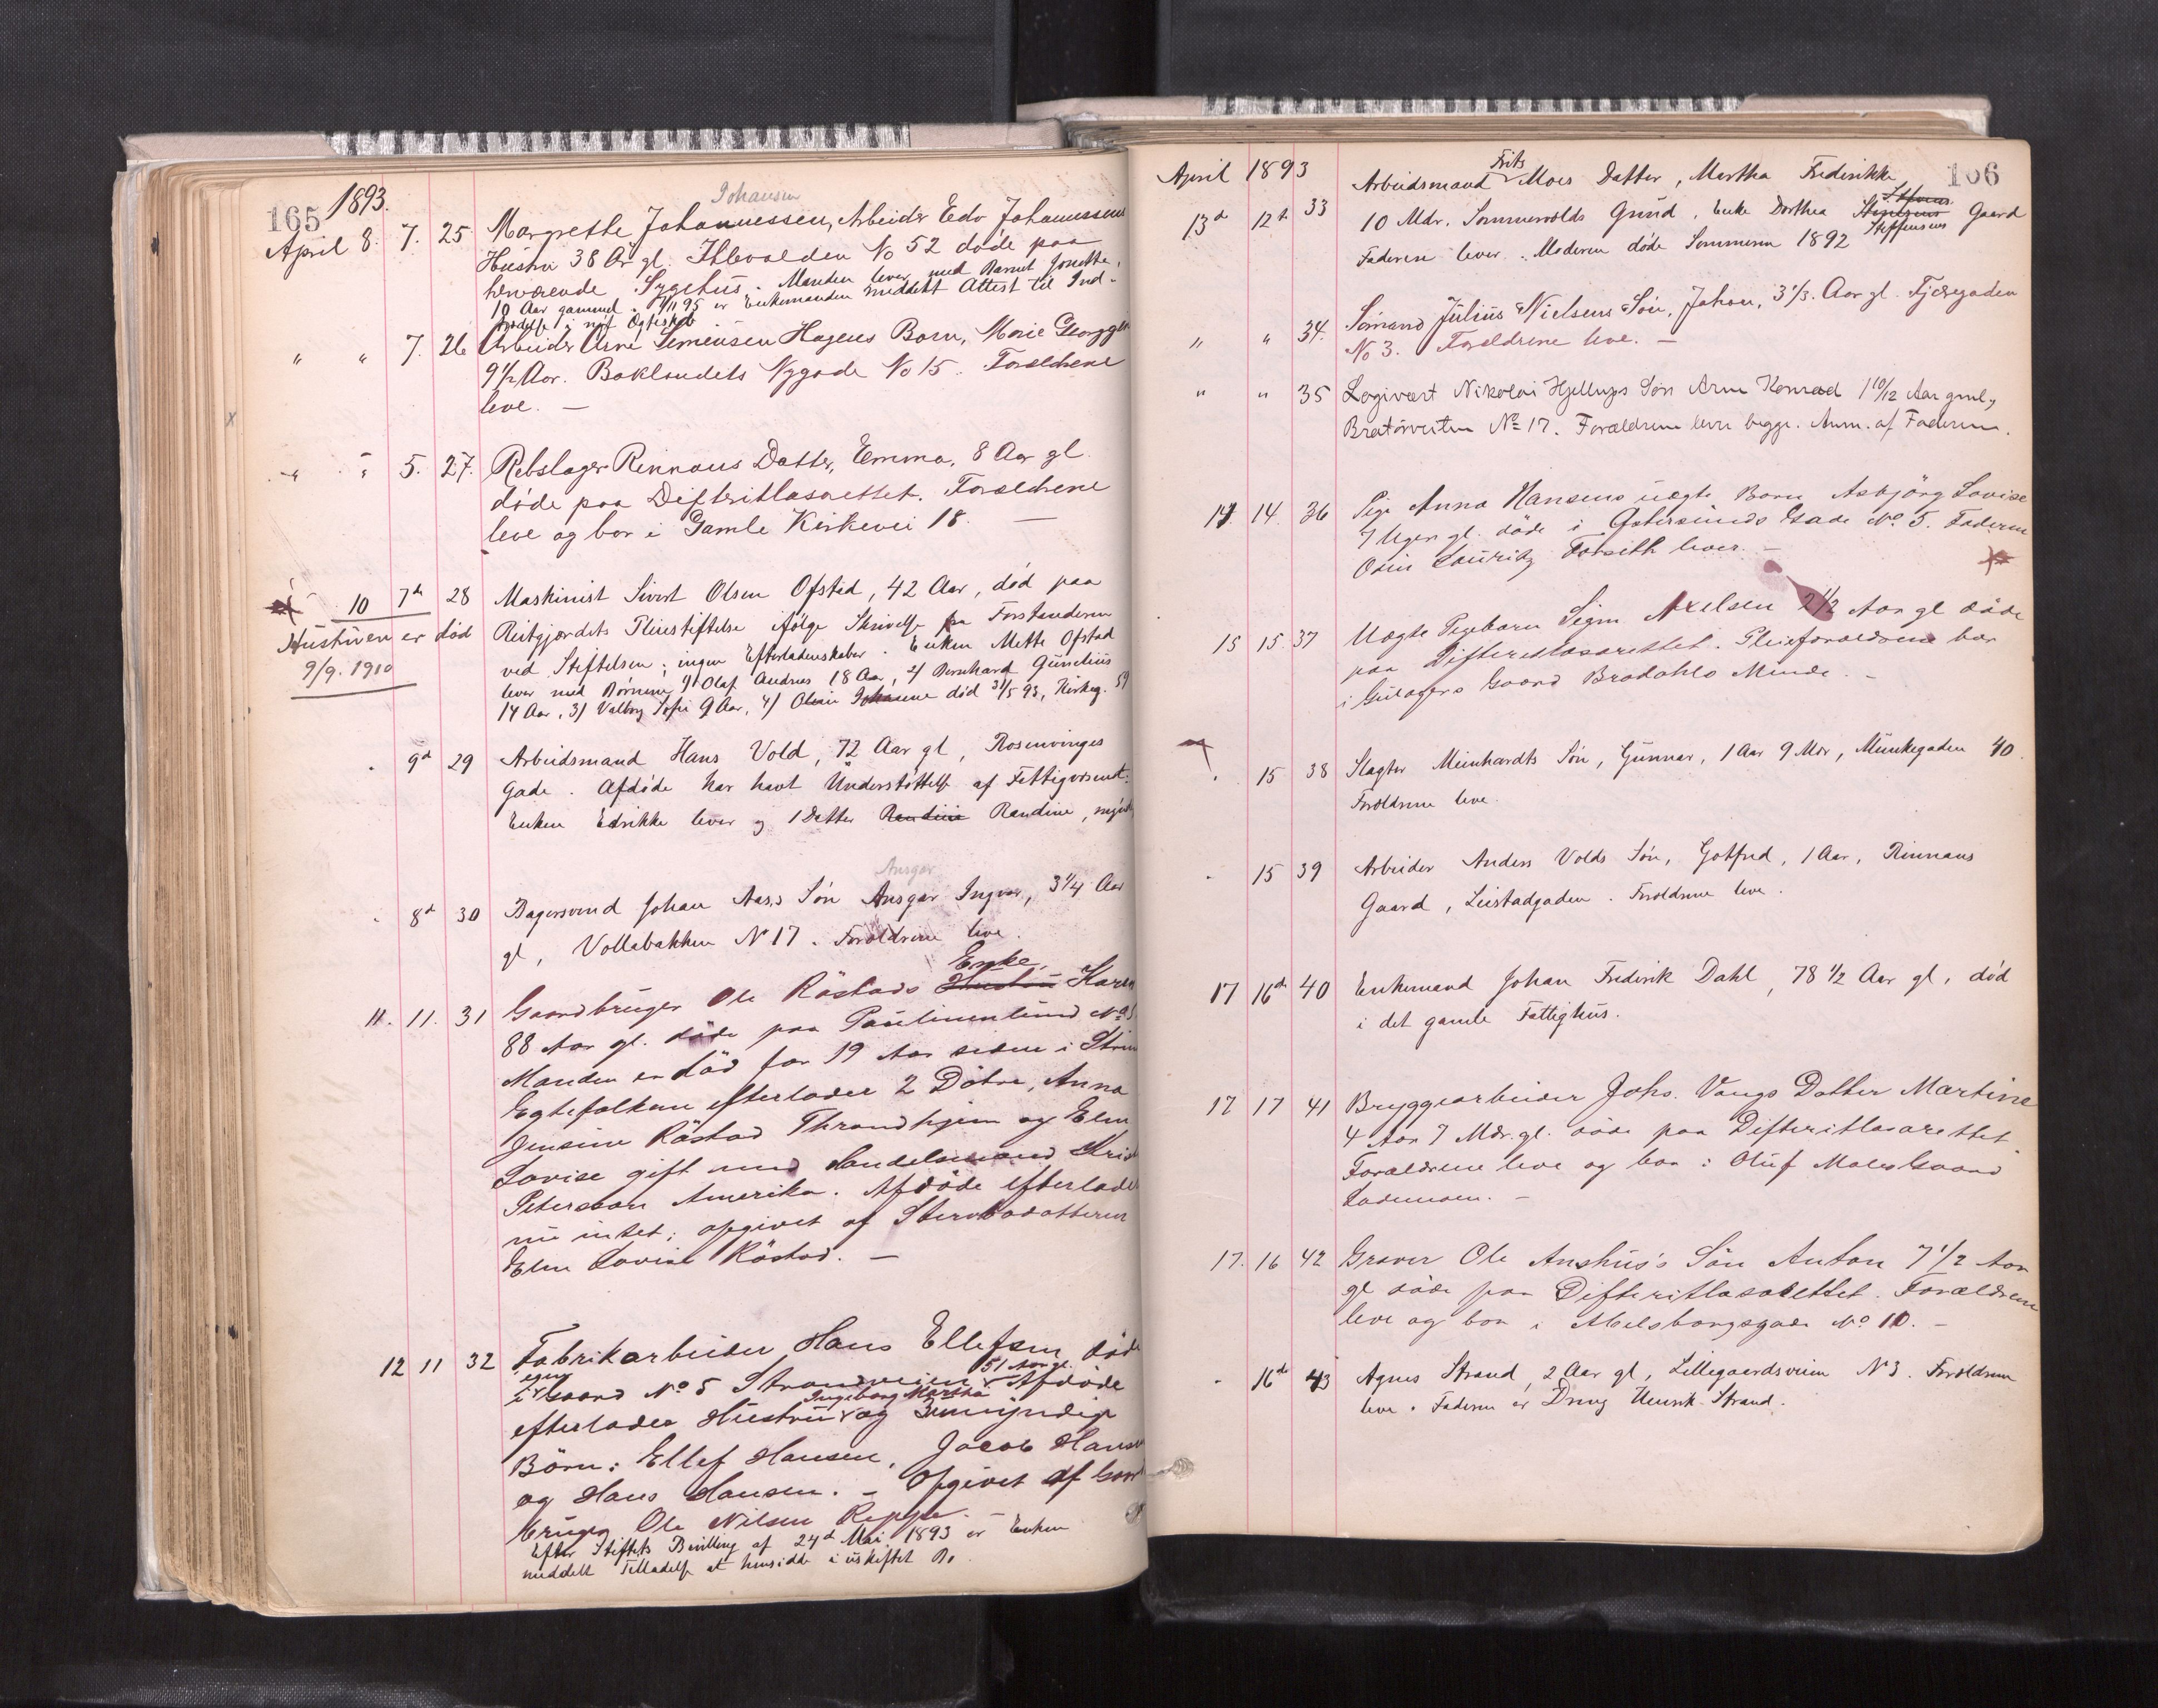 165 1893.
Johansen
April 8. 7. 25 Margrethe Johannessen, Arbeider Edv Johannessens
Hustru 38 Ar gl. Ihlevolden No 52 døde paa
herværende Sygehus. Manden lever med Barnet Josetta,
10 Aar gammel. 1/11 95 er Enkemanden meddelt Attest til Ind-
trædelse i nyt Ægteskab
" " 7. 26 Arbeider Arne Simensen Hagens Barn, Marie Georgine
9 1/2 Aar. Baklandets Nygade No 15. Forældrene
leve. —
" " 5. 27. Rebslager Rinnans Datter, Emma, 8 Aar gl
døde paa Difteritlasarettet. Forældrene
leve og bor i Gamle Kirkevei 18. —
10 7de 28 Maskinist Sivert Olsen Ofstad, 42 Aar, død paa
Hustruen er død Reitgjerdets Pleiestiftelse ifølge Skrivelse fra Forstanderen
9/9. 1910 ved Stiftelsen; ingen Efterladenskaber. Enken Mette Ofstad
lever med Børnene 1/ Olaf Andreas 18 Aar, 2/ Bernhard Gunelius
14 Aar, 3/ Valborg Sofie 9 Aar, 4/ Johanne død 31/5 93, Kirkeg. 59
" 9d 29 Arbeidsmand Hans Vold, 72 Aar gl, Rosenvinges
Gade. Afdøde har havt Understøttelse af Fattigvæsenet.
Enken Edrikke lever og 1 Datter Randine Randine, myndig
Ansgar
" 8d 30 Bagersvend Johan Aas's Søn Ansgar Ingvar, 3 1/4 Aar
gl, Vollabakken No 17. Forældrene leve.
Enke,
11. 11. 31 Gaardbruger Ole Råstads Hustru Karen
88 Aar gl. døde paa Paulinenlund No
Manden er død for 19 Aar siden i
Egtefolkene efterlader 2 Døtre, Anna
Jensine Råstad Throndhjem og Elen
Lovise gift med Handelsmand
Peterson Amerika. Afdøde efterlader
nu intet; opgivet af
Elen Lovise Råstad. —
12 11 32 Fabrikarbeider Hans Ellefsen døde
egen 51 Aar gl.
i Gaard No 5 Strandveien Afdøde
Ingeborg Martha
efterlader Hustru og 3 umyndige
Børn: Ellef Hansen, Jacob Hansen
og Hans Hansen. – Opgivet af Gaard
bruger Ole Nilsen Reppe. —
Efter Stiftets Bevilling af 24d Mai 1893 er Enken
meddelt Tilladelse at hensidde i uskiftet Bo.
166
April 1893
Frits
13d 12t 33 Arbeidsmand Moes Datter, Martha Frederikke
10 Mdr. Sommervolds Grund, Enke Dorthea Steffensens Gaard
Faderen lever. Moderen døde Sommeren 1892
" " 34. Sømand Julius Nielsens Søn, Johan, 3 1/3. Aar gl. Fjæregaden
No 3. Forældrene leve. —
" " 35 Logivært Nikolai Hjellups Søn Arne Konrad 1 10/12 Aar gml.,
Bratørveiten No 17. Forældrene lever begge. Anm. af Faderen.
14 14. 36 Pige Anna Hansens uægte Barn Asbjørg Lovise
7 Uger gl. døde i Østersunds Gade No 5. Faderen
Odin Lauritz Forseth lever. —
15 15. 37 Uægte Pigebarn Signe Axelsen 2 1/2 Aar gl døde
paa Difteritlasarettet. Pleieforældrene bor
i Gulagers Gaard Bradahls Minde. —
" 15 38 Slagter Meinhardts Søn, Gunnar, 1 Aar 9 Mdr, Munkegaden 40.
Forældrene leve.
" 15 39 Arbeider Anders Volds Søn, Gotfred, 1 Aar, Rinnans
Gaard, Leistadgaden. Forældrene leve.
17 16d 40 Enkemand Johan Frederik Dahl, 78 1/2 Aar gl, død
i det gamle Fattighus.
17 17 41 Bryggearbeider Johs. Vangs Datter Martine
4 Aar 7 Mdr. gl. døde paa Difteritlasarettet
Forældrene leve og bor i Oluf Moles Gaard
Lademoen. —
17. 16 42 Graver Ole Anshus's Søn Anton 7 1/2 Aar
gl døde paa Difteritlasarettet. Forældrene
leve og bor i Abelsborggade No 10. —
" 16de 43 Agnes Strand, 2 Aar gl, Lillegaardsveien No 3. Forældrene
leve. Faderen er Dreng Henrik Strand.